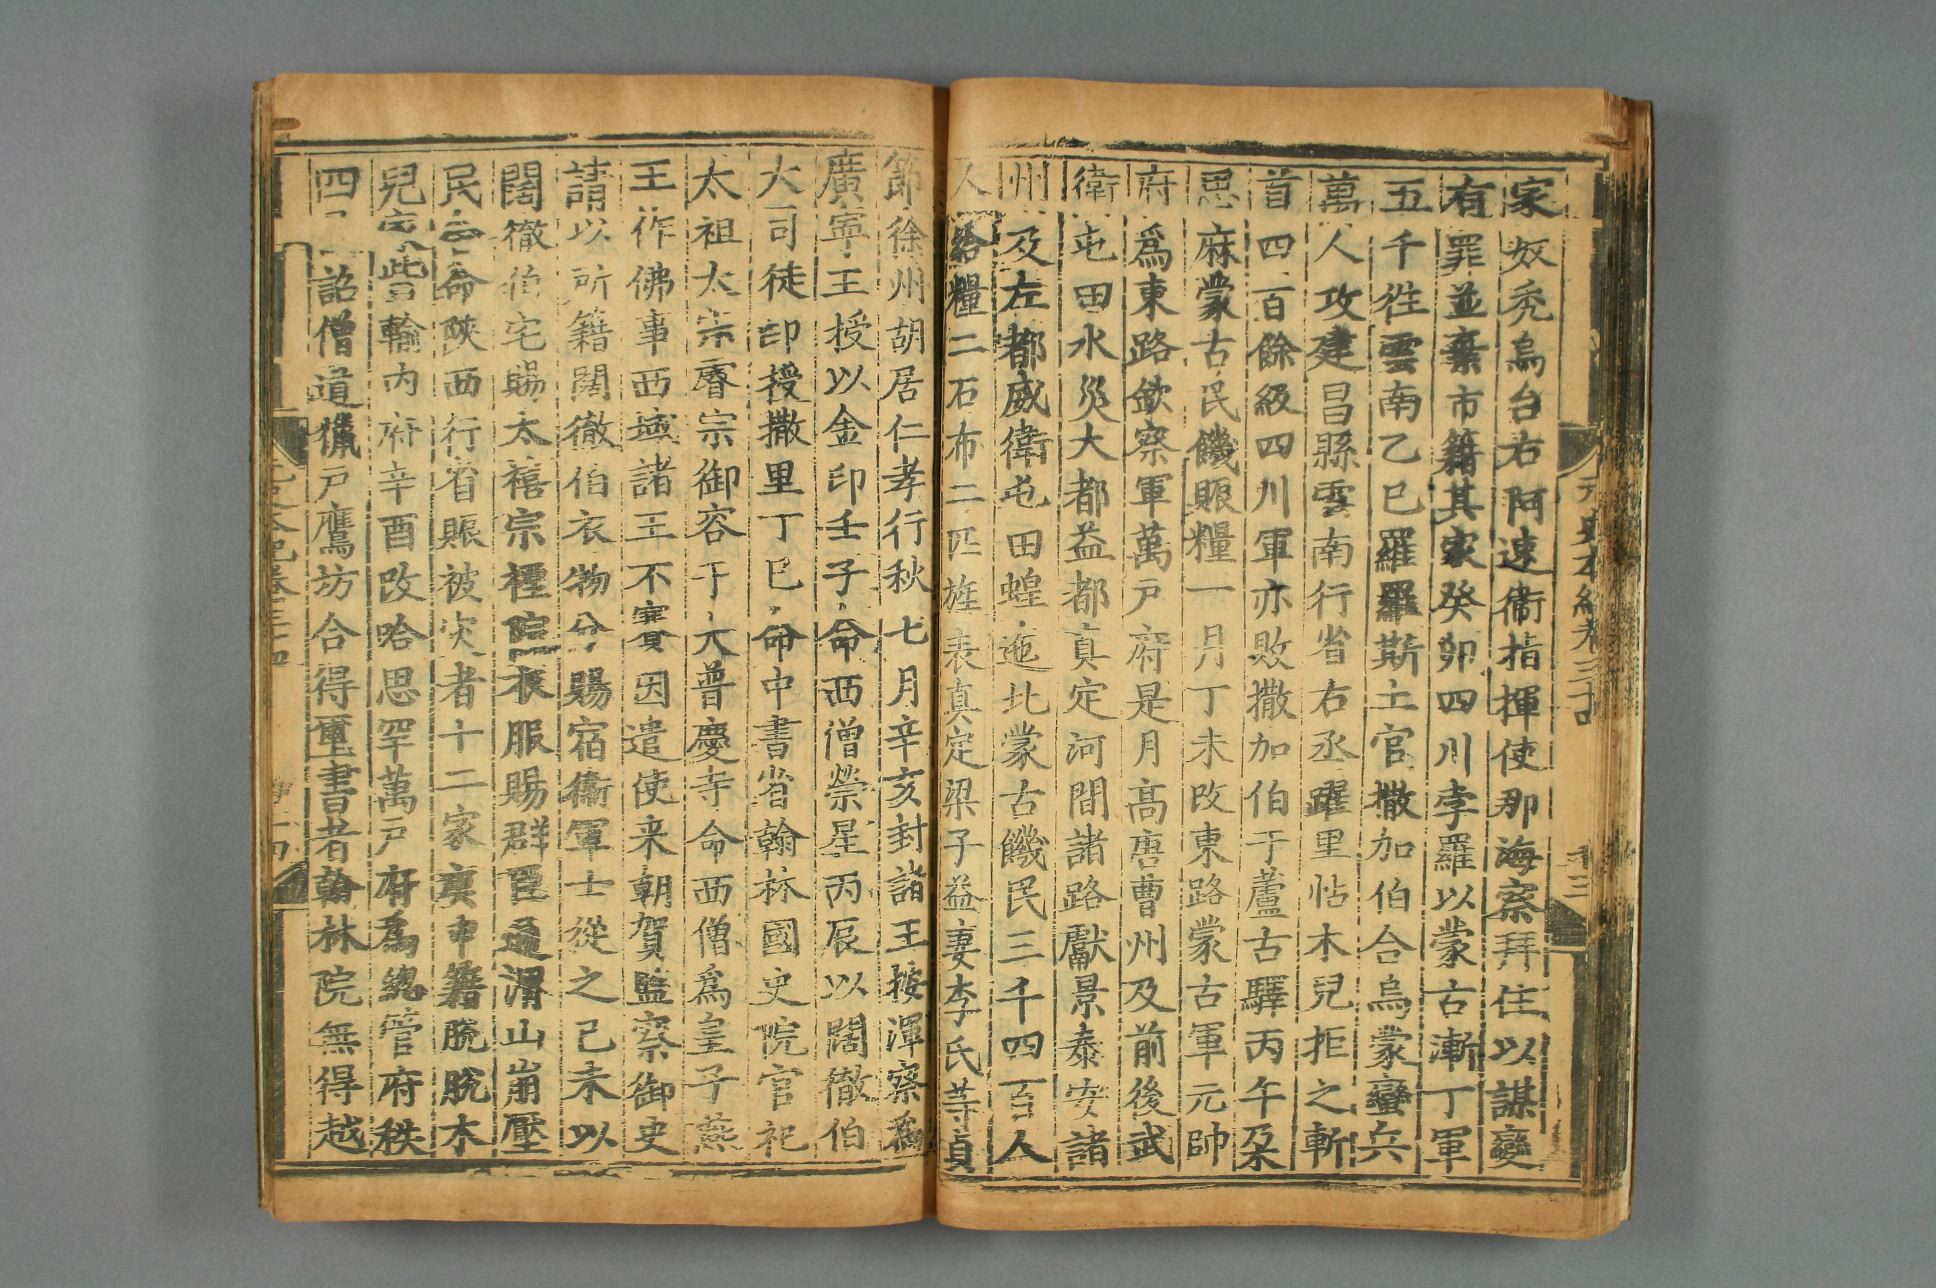 家奴秃烏台右阿速衛指揮使那海察拜住以謀變
有罪並棄市籍其家癸卯四川孛羅以蒙古漸丁軍
五千徃雲南乙巳羅羅斯土官撒加伯合烏蒙蠻兵
萬人攻建昌縣雲南行省右丞躍里帖木兒拒之斬
首四百餘級四川軍亦敗撒加伯于蘆古驛丙午朶
思麻蒙古民饑賑糧一月丁未攺東路蒙古軍元帥
府爲東路欽察軍萬户府是月髙唐曹州及前後武
衛屯田水災大都益都真定河間諸路獻景泰安諸
州及左都威衛屯田蝗迤北蒙古饑民三千四百人
人給糧二石布二匹旌表真定梁子益妻李氏等貞
節徐州胡居仁孝行秋七月辛亥封諸王按渾察爲
廣寧王授以金印壬子命西僧禜星丙辰以闊徹伯
大司徒印授撒里丁巳命中書省翰林國史院官祀
太祖太宗睿宗御容于大普慶寺命西僧爲皇子燕
王作佛事西域諸王不賽因遣使来朝賀監察御史
請以所籍闊徹伯衣物分賜宿衞軍士從之己未以
闊徹伯宅賜太禧宗禋院衣服賜群臣通渭山崩壓
民舍命陜西行省賑被灾者十二家庚申籍脫脫木
兒
貲輸内府辛酉攺哈思罕萬户府爲總管府秩
四
詔僧道獵户鷹坊合得璽書者翰林院無得越
元史本紀卷三十四
十三